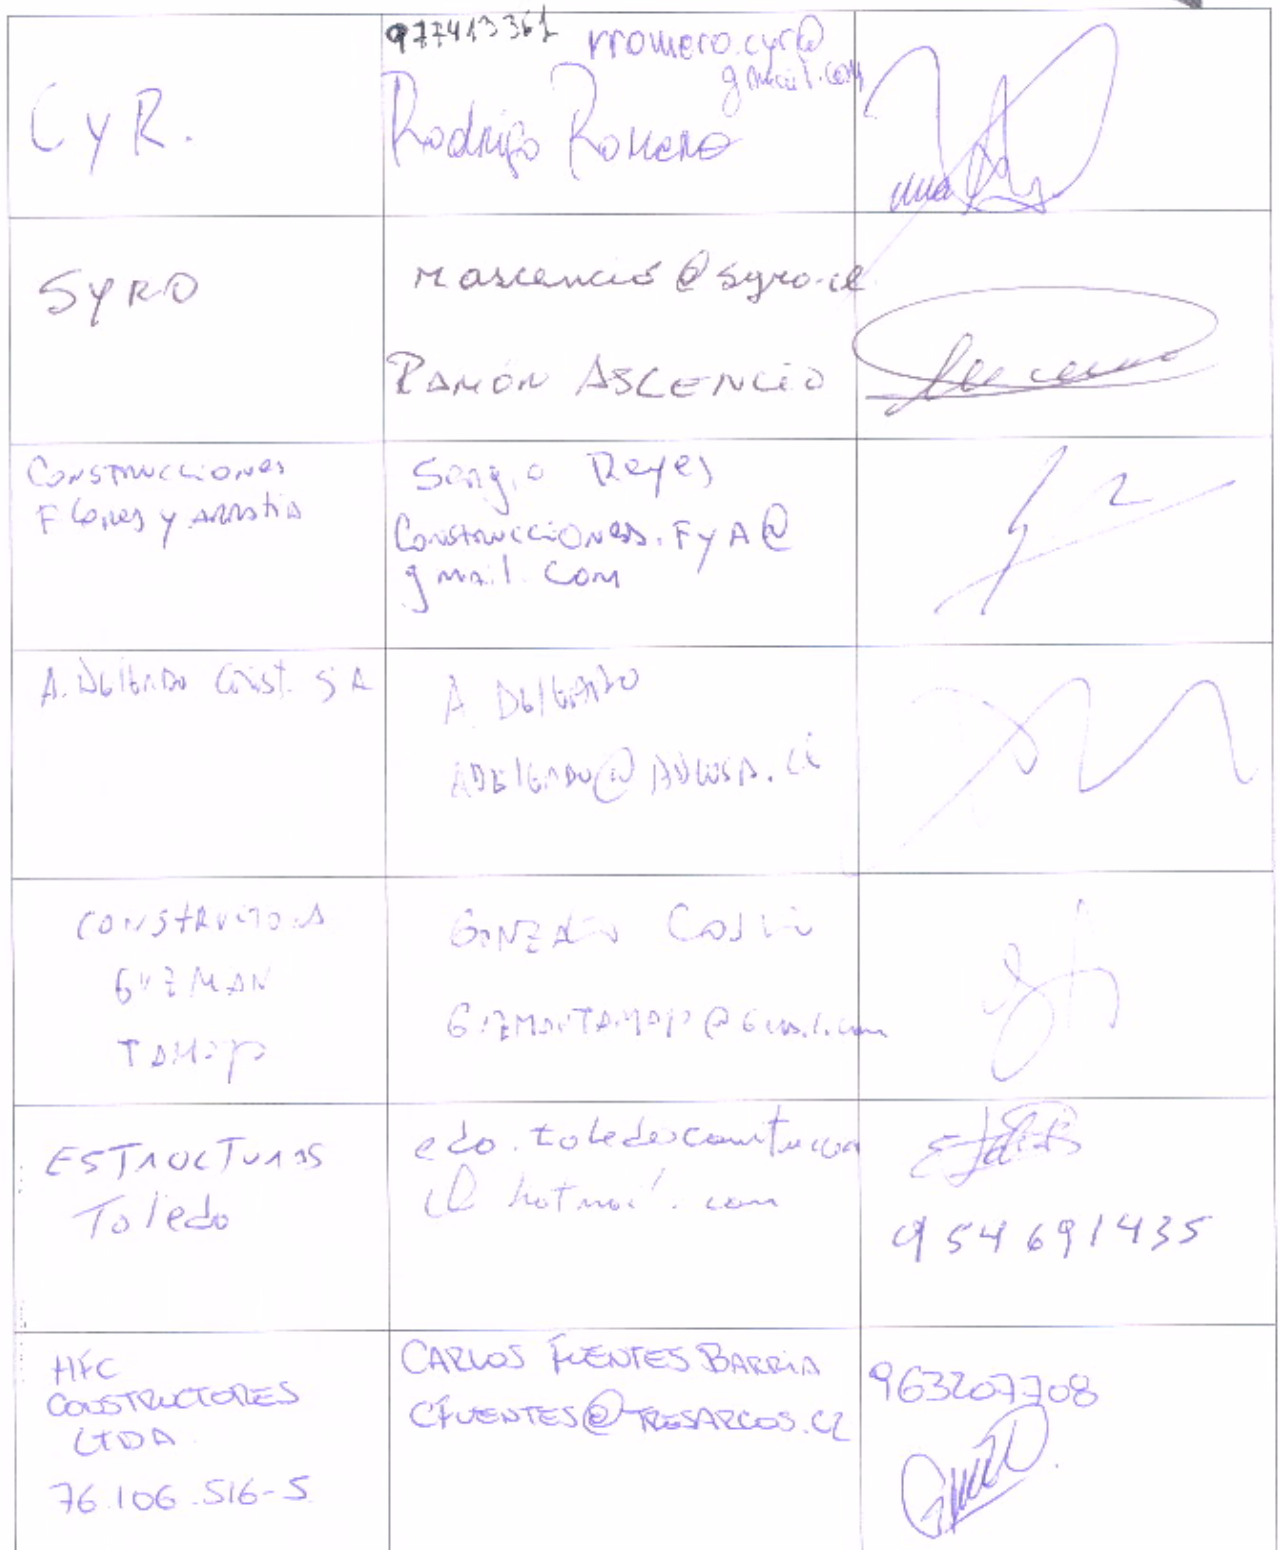 CyR.
977413361
rromero.cyr@
gmail.com
Rodrigo Romero
SYRO
rascencio@syro.cl
RAMÓN ASCENCIO
Construcciones
Flores y Arratia
Sergio Reyes
Construcciones.FyA@
gmail.com
A. Delgado Const. S A
A. DELGADO
ADELGADO@ADCOSA.CL
CONSTRUCTORA
GUZMAN
TAMAYO
GONZALO
ESTRUCTURAS
Toledo
edo.toledoconstruccion
@hotmail.com
954691435
HFC
CONSTRUCTORES
LTDA
76.106.516-5
CARLOS FUENTES BARRIA
CFUENTES@TRESARCOS.CL
963207708